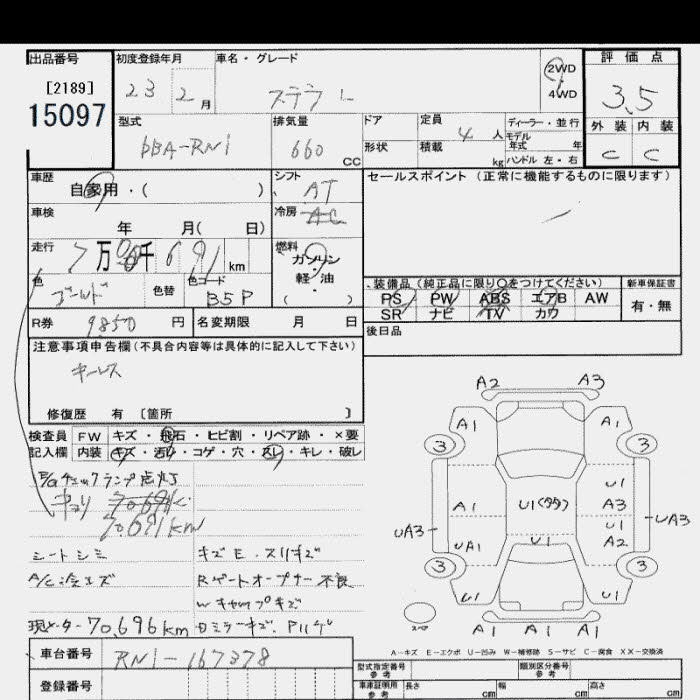 出品番号 初度登録年月 車名・グレード 評価点
[2189] 23 2月 ステラ L 2WD・4WD 3.5
15097
型式 排気量 ドア 定員 ディーラー・並行 外装 内装
DBA-RN1 660 CC 形状 積載 4人 kg モデル年式 年 ハンドル 左・右 C C
車歴 シフト セールスポイント (正常に機能するものに限ります)
自家用・( ) AT
車検 冷房
年 月( 日) AC
走行 7万 千 691 km 燃料 ガソリン・軽油 ( )
色 色替 色コード 装備品(純正品に限り○をつけてください) 新車保証書
ゴールド B5P PS PW ABS エアB AW 有・無
SR ナビ TV カワ
R券 9850 円 名変期限 月 日 後日品
注意事項申告欄(不具合内容等は具体的に記入して下さい)
キーレス
修復歴 有 〔箇所 〕
検査員 FW キズ・飛石・ヒビ割・リペア跡・×要
記入欄 内装 キズ・汚レ・コゲ・穴・スレ・キレ・破レ
E/Gチェックランプ点灯
キョリ 70.691K
70.691km
シートシミ キズE.スリキズ
A/C冷エズ Rゲートオープナー不良
Wキャップキズ
現メーター70,696km Dミラーキズ.
車台番号 RN1-167378
登録番号
A2 A3
A1 A1
3 3
U1
A1 U1(多数) A3
UA3 U1 UA3
UA1 U1 A2
3 3
U1 U1
スペア A1 A1 A1
A-キズ E-エクボ U-凹み W-補修跡 S-サビ C-腐食 XX-交換済
型式指定番号 類別区分番号
参考
車庫証明用 長さ 幅 高さ
参考 cm cm cm